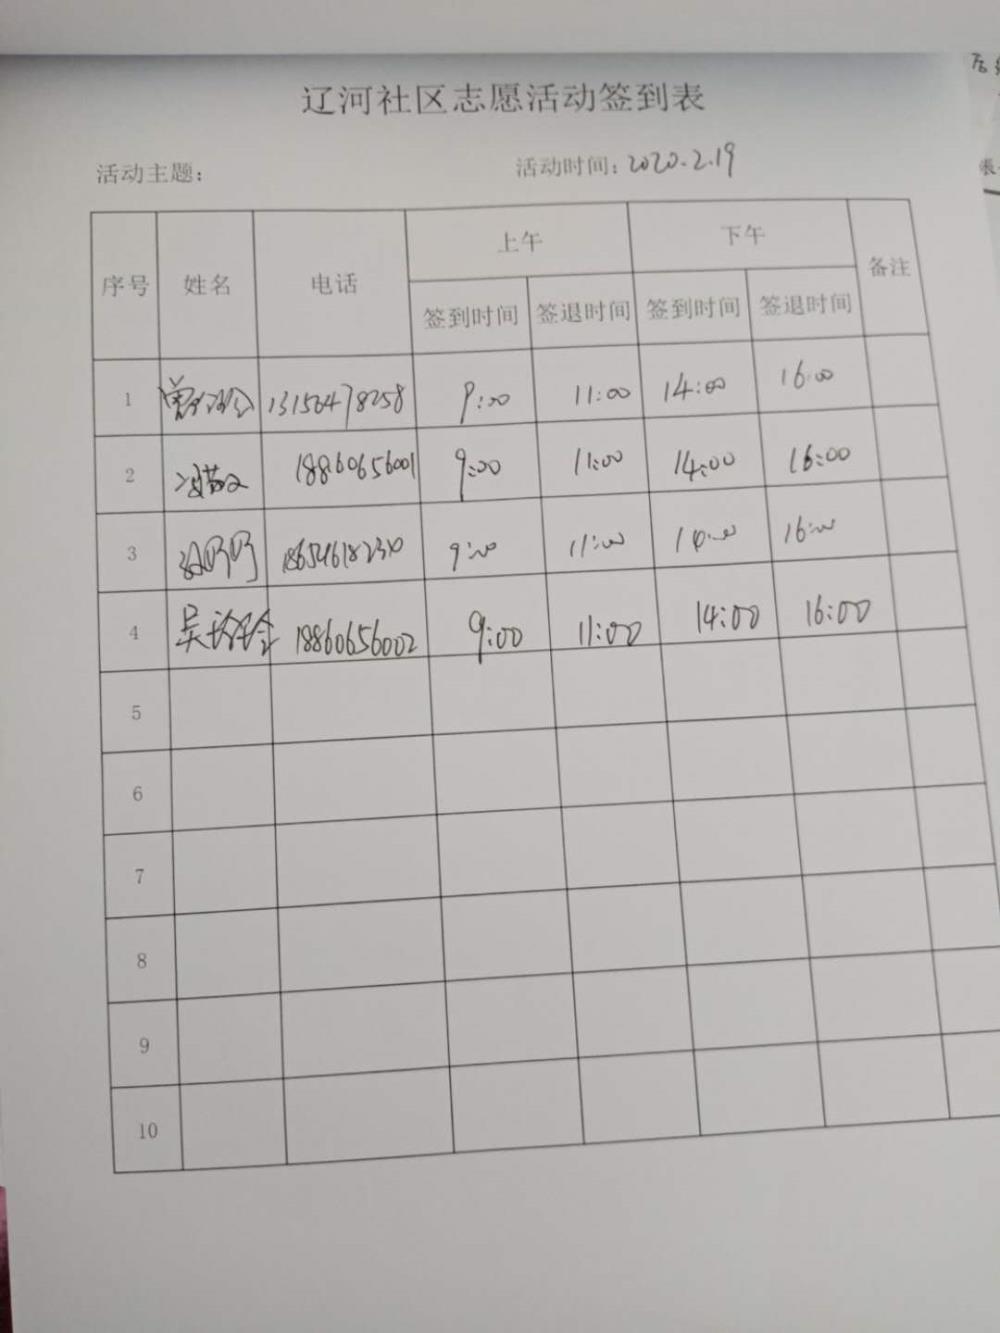 辽河社区志愿活动签到表
活动主题：
活动时间：2020.2.19
序号 姓名 电话 上午 下午 备注
签到时间 签退时间 签到时间 签退时间
1 13156478258 9:00 11:00 14:00 16:00
2 18860656001 9:00 11:00 14:00 16:00
3 9:00 11:00 14:00 16:00
4 吴玲玲 18860656002 9:00 11:00 14:00 16:00
5
6
7
8
9
10